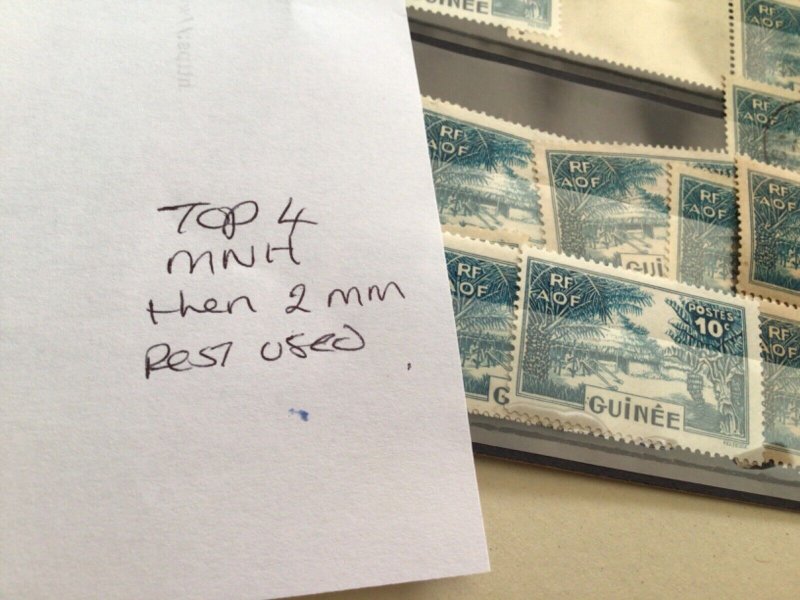 TOP 4
MNH
then 2 mm
REST USED
GUINÉE
RF
AOF
RF
AOF
RF
AOF
RF
AOF
GUI
RF
AOF
RF
AOF
RF
AOF
G
RF
AOF
POSTES
10c
GUINÉE
RF
AOF